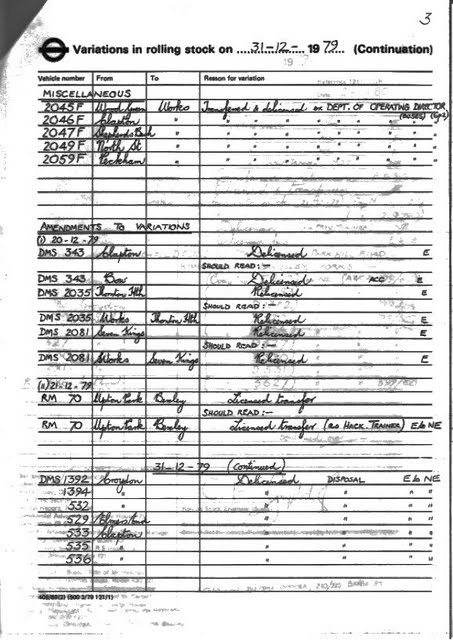 3
Variations in rolling stock on ....31-12-... 1979. (Continuation)
Vehicle number From To Reason for variation
MISCELLANEOUS
2045F Wood Green Works Transferred & delicensed on DEPT. OF OPERATING DIRECTOR
2046F Clapton " " " " " " " " (BUSES) (Gp2)
2047F Shepherds Bush " " " " " " " "
2049F North St " " " " " " " "
2059F Peckham " " " " " " " "
AMENDMENTS TO VARIATIONS
(i) 20-12-79
DMS 343 Clapton Delicensed E
SHOULD READ:-
DMS 343 Bow Delicensed ACC E
DMS 2035 Thornton Hth Relicensed E
SHOULD READ:-
DMS 2035 Works Thornton Hth Relicensed E
DMS 2081 Seven Kings Relicensed E
SHOULD READ:-
DMS 2081 Works Seven Kings Relicensed E
(ii) 21-12-79
RM 70 Upton Park Bexley Licensed transfer
SHOULD READ:-
RM 70 Upton Park Bexley Licensed transfer (as HACK. TRAINER) E to NE
31-12-79 (continued)
DMS 1392 Croydon Delicensed DISPOSAL E to NE
1394 " " " " " "
532 " " " " "
529 " " " "
533 Clapton " " " "
535 " " " " "
536 " " " " "